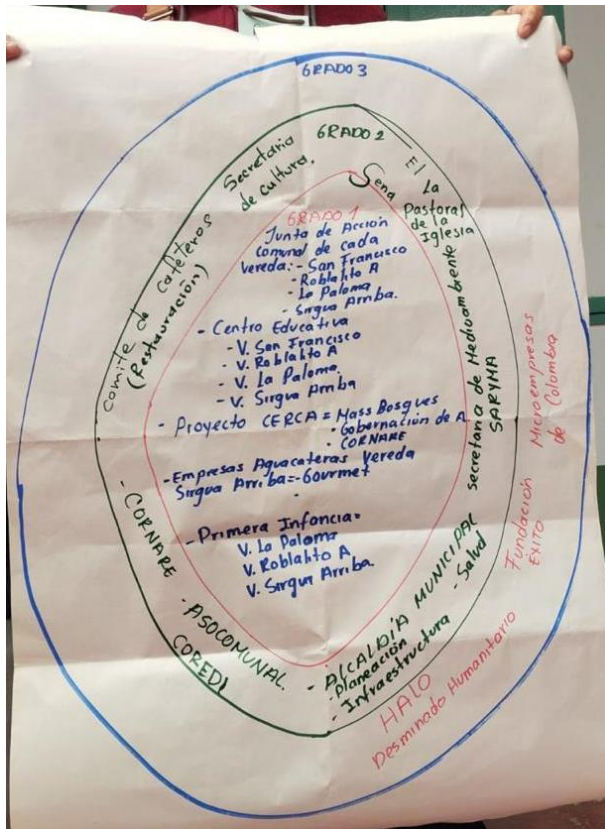 GRADO 3
GRADO 2
Secretaria
de cultura.
Sena
El La
Pastoral
de la
Iglesia
comite de cafeteros
(Restauración)
GRADO 1
Junta de Acción
Comunal de cada
Vereda: - San Francisco
- Roblalito A
- La Paloma
- Sirgua Arriba.
- Centro Educativa
- V. San Francisco
- V. Roblalito A
- V. La Paloma.
- V. Sirgua Arriba
- Proyecto CERCA = Mass Bosques
- Gobernación de A
- CORNARE
- Empresas Aguacateras Vereda
Sirgua Arriba = - Gourmet
-
- Primera Infancia =
V. La Paloma
V. Roblalito A
V. Sirgua Arriba.
secretaria de Medioambente
SARYMA
Microempresas
de Colombia
Fundación
Exito
- CORNARE
- ASOCOMUNAL.
COREDI
- ALCALDÍA MUNICIPAL
- Planeación
- Salud
- Infraestructura
HALO
Desminado Humanitario